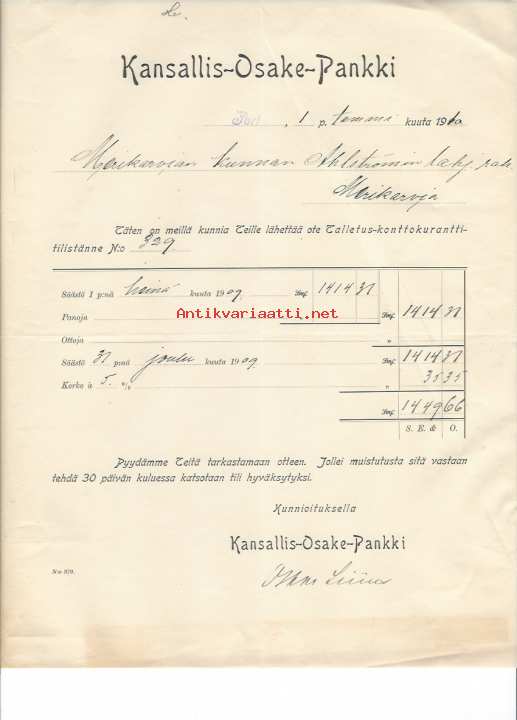 Kansallis-Osake-Pankki
Pori, 1 p. tammi kuuta 1910
Merikarvian kunnan Ahlströmin lahj. rah.
Merikarvia
Täten on meillä kunnia Teille lähettää ote Talletus-konttokurantti-
tilistänne N:o 329
Säästö 1 p:nä heinä kuuta 1909 Smf. 1414 31
Panoja Smf. 1414 31
Antikvariaatti.net
Ottoja "
Säästö 31 p:nä joulu kuuta 1909 " 1414 31
Korko à 5 % " 35 35
Smf. 1449 66
S. E. & O.
Pyydämme Teitä tarkastamaan otteen. Jollei muistutusta sitä vastaan
tehdä 30 päivän kuluessa katsotaan tili hyväksytyksi.
Kunnioituksella
Kansallis-Osake-Pankki